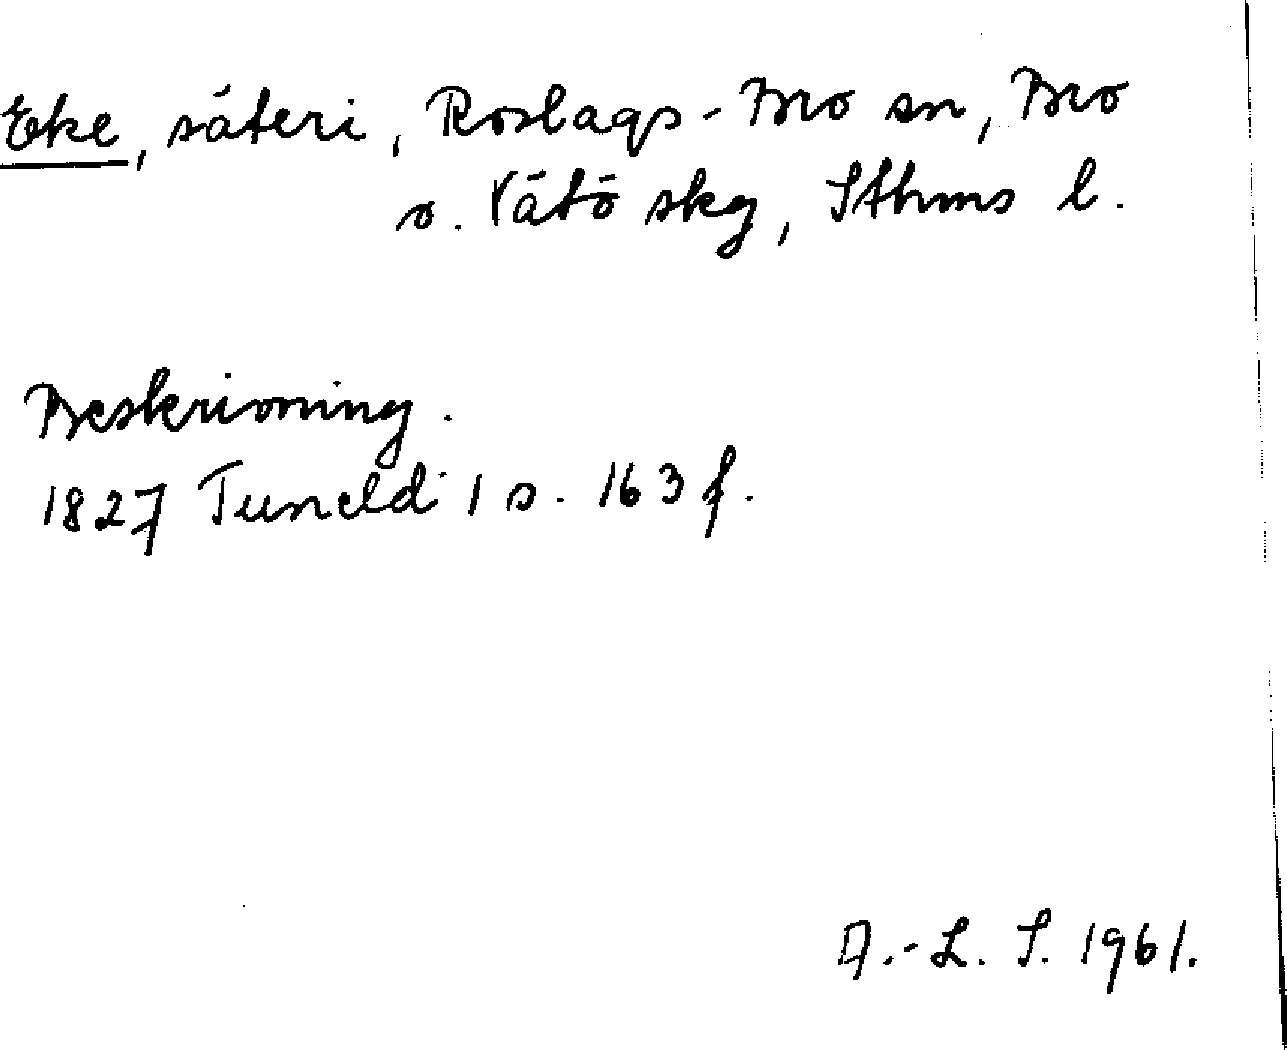 Eke, säteri, Roslags-Bro sn, Bro
o. Vätö skg, Sthms l.
Beskrivning.
1827 Tuneld 1 s. 163 f.
A.-L. S. 1961.